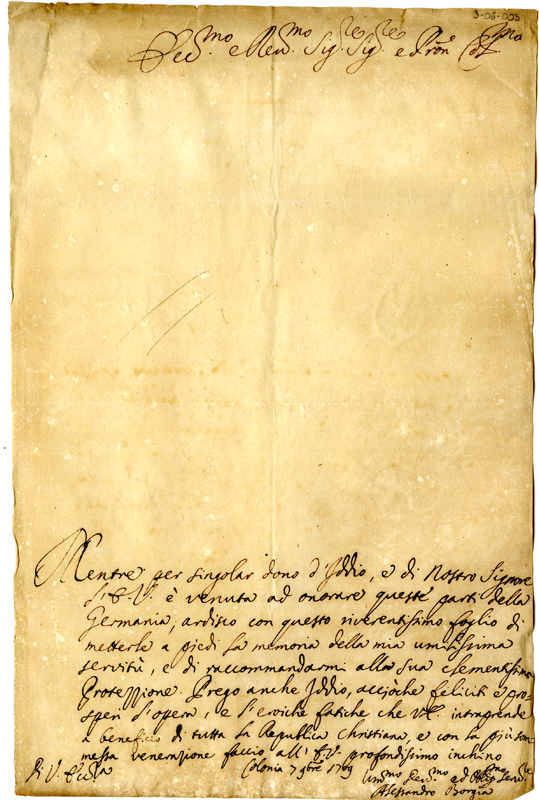 3-06-003
Ecc.mo e Rev.mo Sig.re Sig.re e Pron Col.mo
Mentre per singolar dono d'Iddio, e di Nostro Signore
V.E. è venuta ad onorare queste parti della
Germania; ardisco con questo riverentissimo foglio di
metterle a piedi la memoria della mia umilissima
servitù, e di raccommandarmi alla sua clementissima
Protezzione. Prego anche Iddio, acciòche feliciti e pro-
speri l'opera, e l'eroiche fatiche che V.E. intraprende
a beneficio di tutta la Republica Christiana, e con la più som-
messa venerazione faccio all' E.V. profondissimo inchino
Di V. Ecc.za Colonia 7 9bre 1709
Um.mo Dev.mo ed Obblig.mo Serv.re
Alessandro Borgia